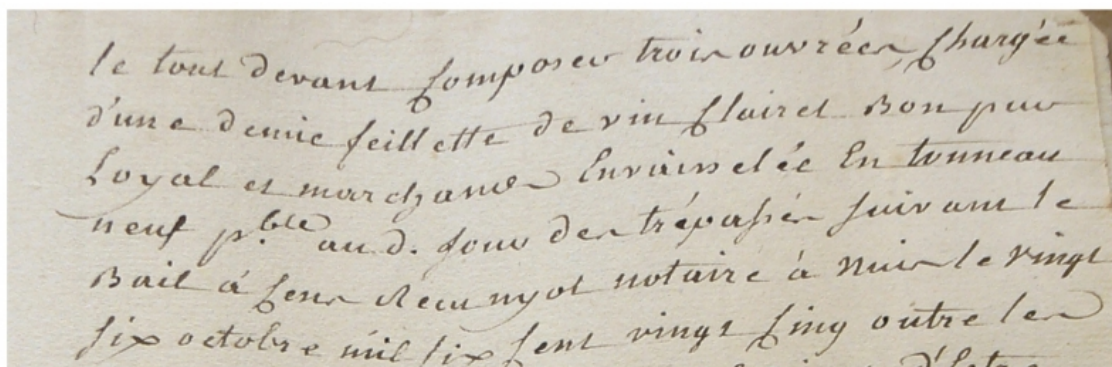 le tout devant composer trois ouvrées, chargée
d'une demie feillette de vin clairet Bon pur
Loyal et marchand Envaisselée En tonneau
neuf p.ble aud. jour des trépassés suivant le
Bail à cens notaire à Nuis le vingt
six octobre mil six cent vingt cinq outre les
d'être